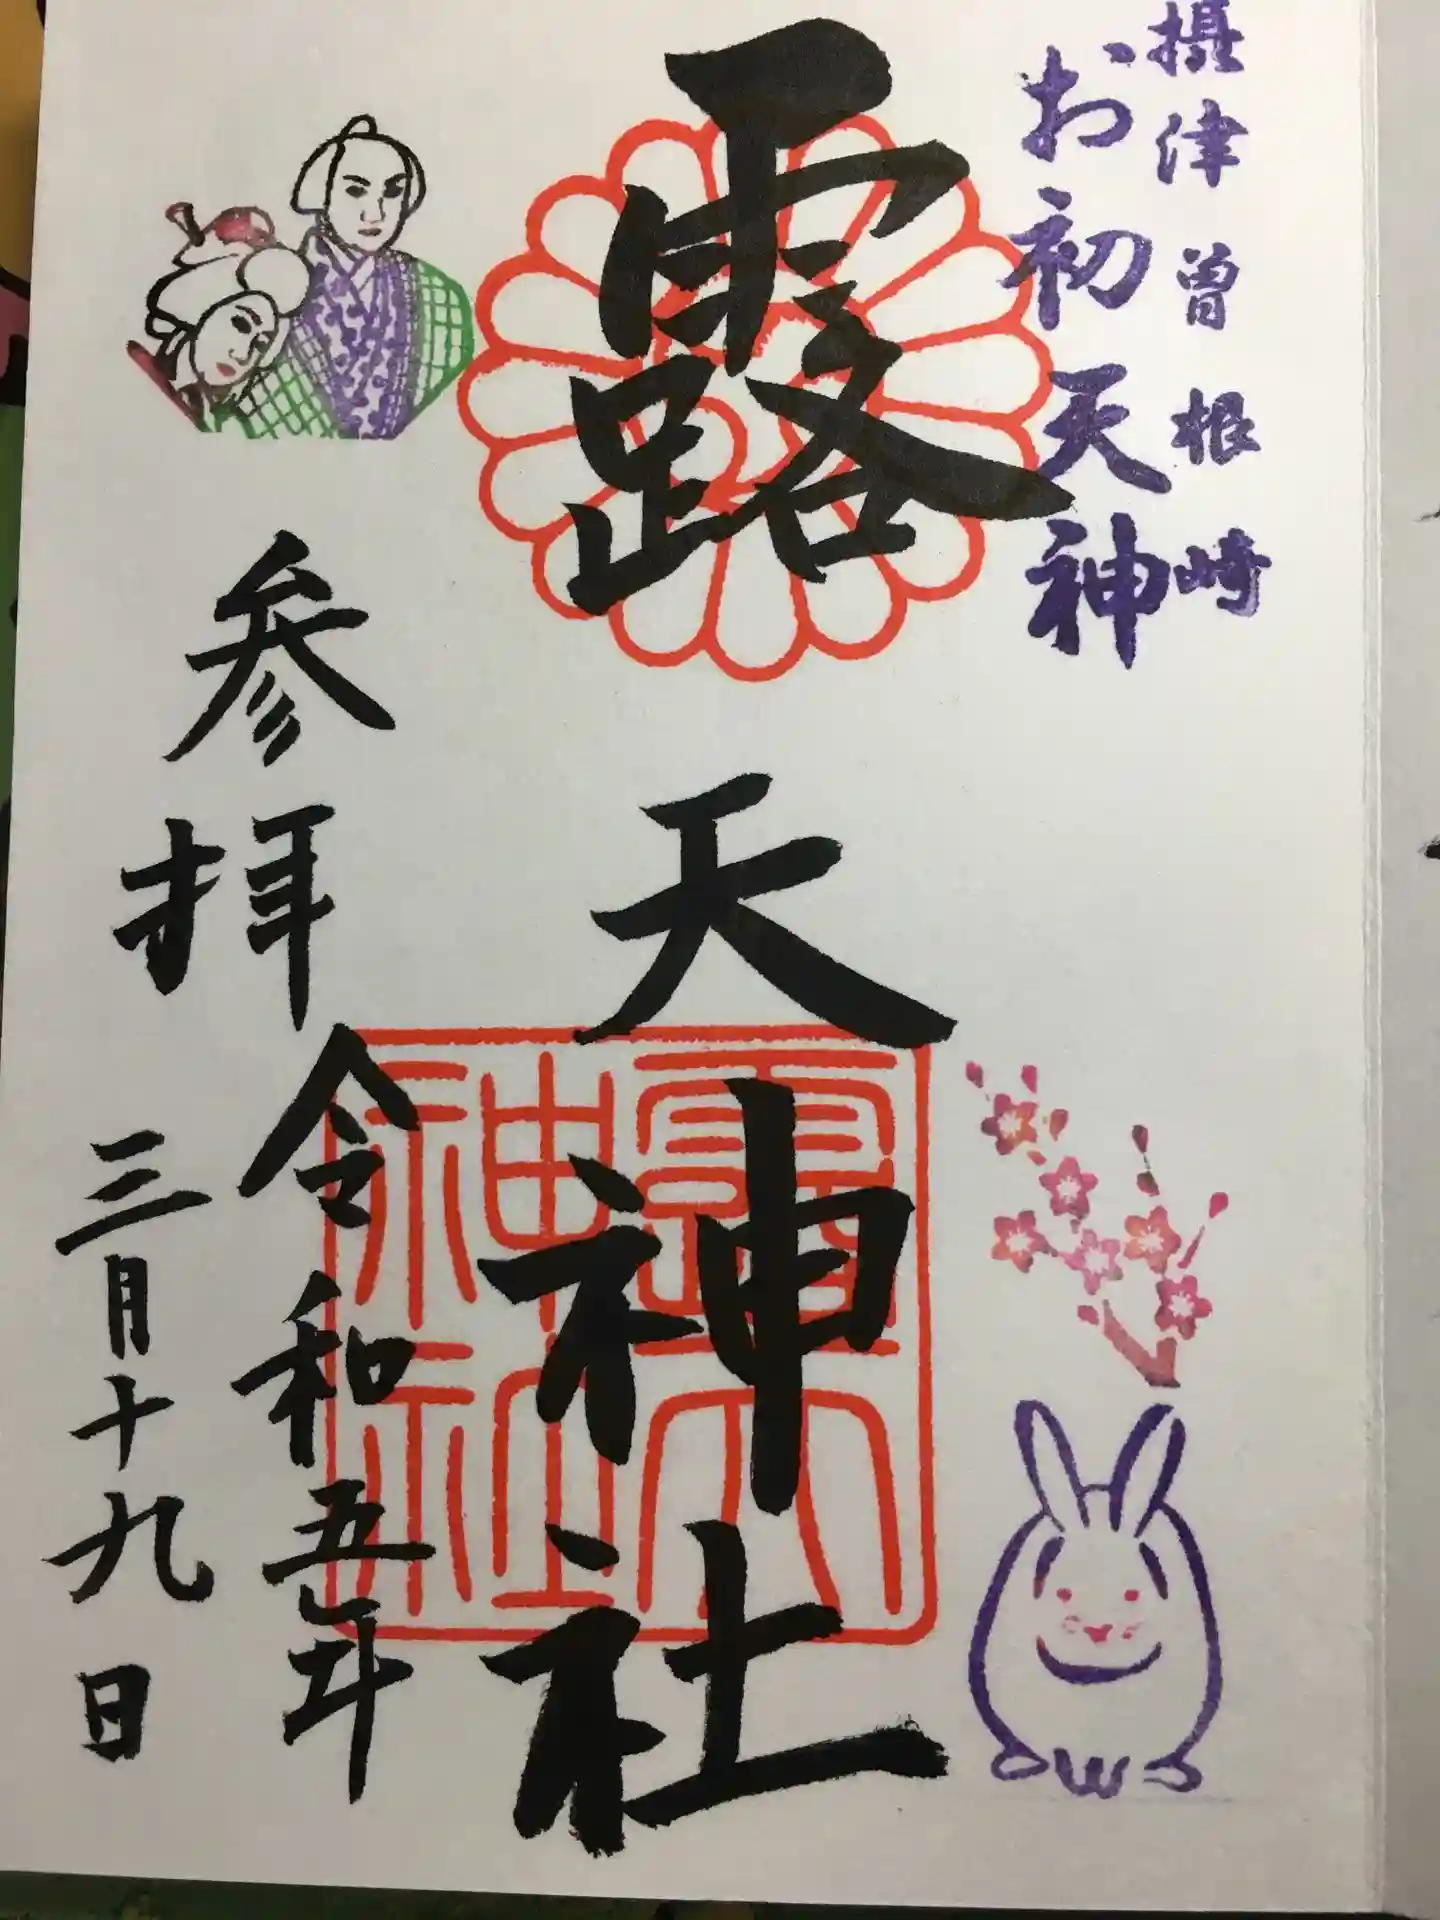 摂津曽根崎
お初天神
露天神社
露天
神社
参拝
令和五年
三月十九日